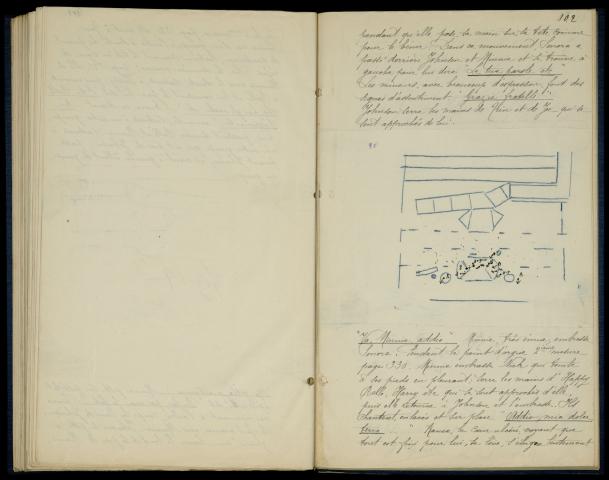 102
pendant qu'elle pose la main sur la tête comme
pour le bénir. Dans ce mouvement, Sonora a
passé derrière Johnson et Minnie et se trouve à
gauche pour lui dire "Le tue parole etc"
Les mineurs, avec beaucoup d'expression, font des
signes d'assentiment. "Grazie fratelli"
Johnson serre les mains de Trin et de Joe qui se
sont approchés de lui.
"Va, Minnie, addio" Minnie, très émue, embrasse
Sonora. Pendant le point d'orgue 2ième mesure
page 330 Minnie embrasse Nick qui tombe
à ses pieds en pleurant; serre les mains d'Happy
Bello, Harry etc qui se sont approchés d'elle,
puis elle retourne à Johnson et l'embrasse. Ils
chantent, enlacés et sur place "Addio, mia dolce
terra" Rance, le cœur ulcéré, voyant que
tout est fini pour lui, se lève, s'éloigne lentement